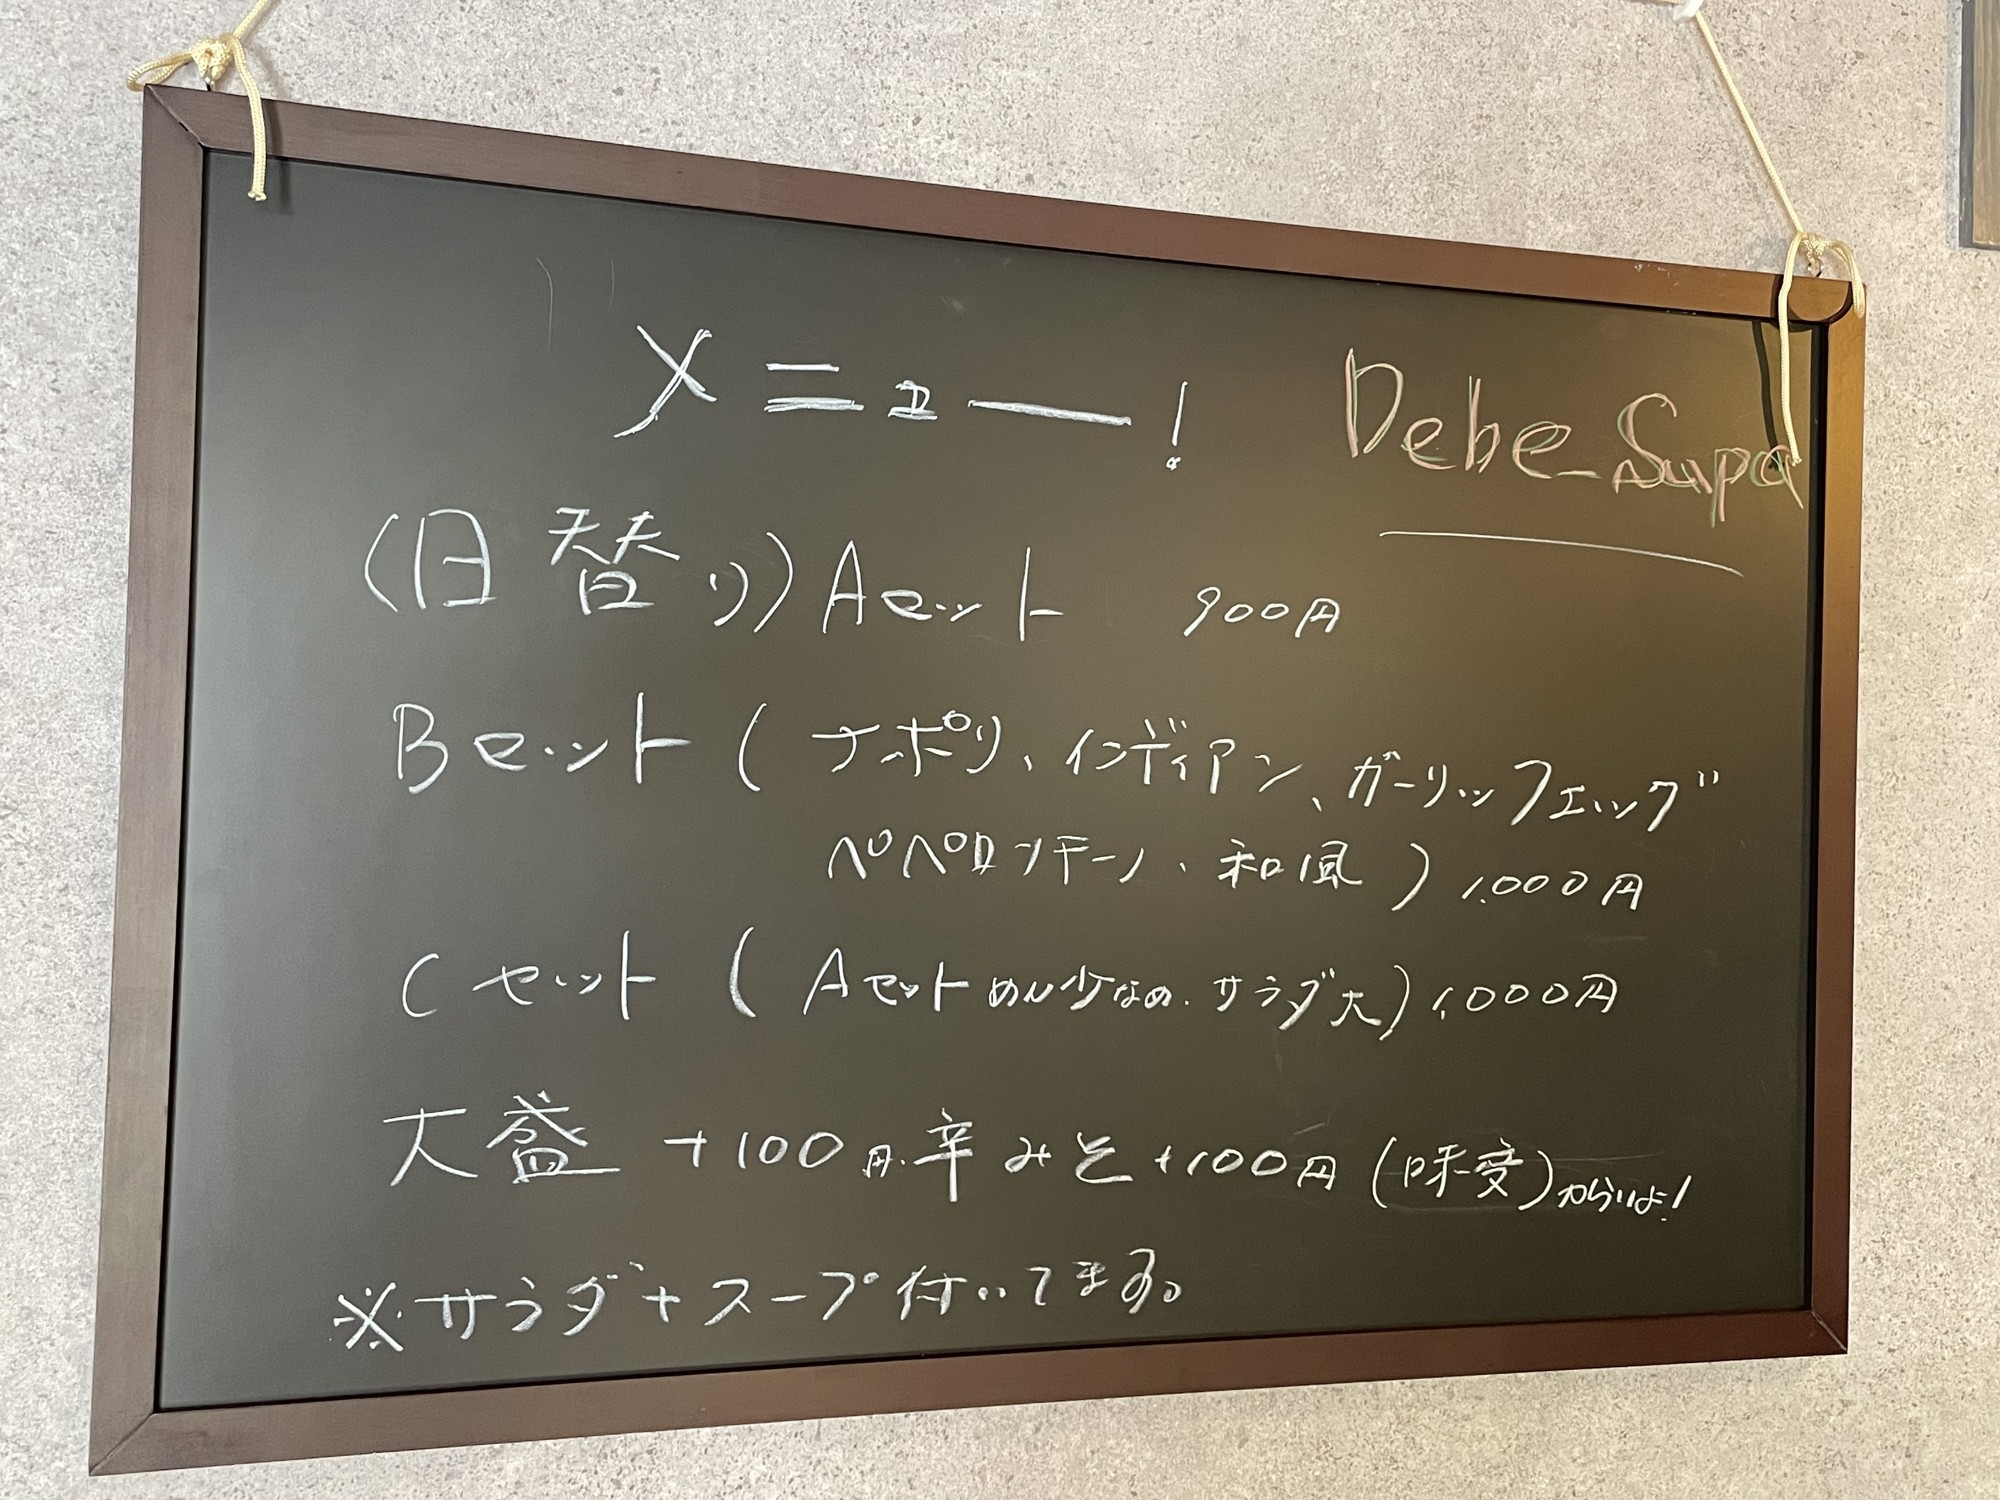 メニュー!
Debe_Supa
(日替り)Aセット 900円
Bセット(ナポリ、インディアン、ガーリックエッグ
ペペロンチーノ、和風)1,000円
Cセット(Aセットめん少なめ.サラダ大)1,000円
大盛 +100円.辛みそ+100円(味変)からいよ!
※サラダ+スープ付いてます。